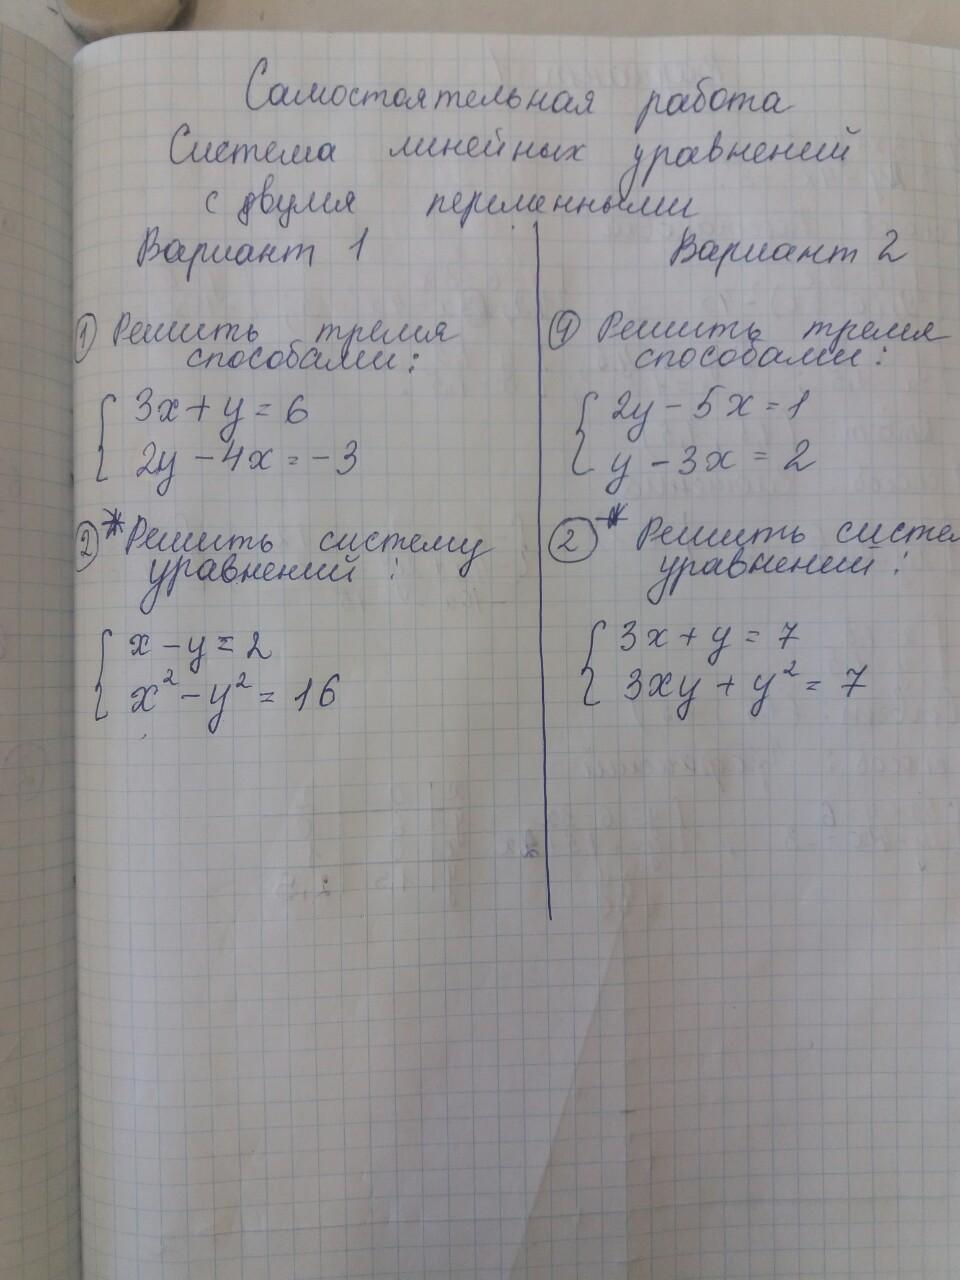 Самостоятельная работа
Система линейных уравнений
с двумя переменными
Вариант 1
① Решить тремя
способами:
{ 3x + y = 6
2y - 4x = -3
②* Решить систему
уравнений:
{ x - y = 2
x² - y² = 16
Вариант 2
① Решить тремя
способами:
{ 2y - 5x = 1
y - 3x = 2
②* Решить систем
уравнений:
{ 3x + y = 7
3xy + y² = 7